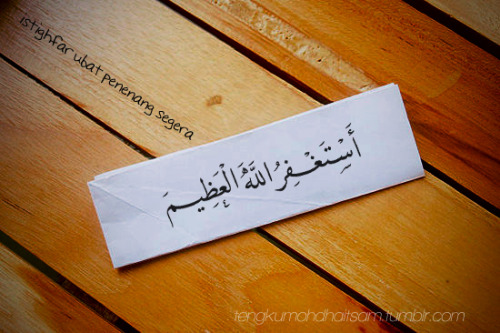 istighfar ubat penenang segera
أَسْتَغْفِرُ اللَّهَ الْعَظِيمَ
tengkumahdhaitsam.tumblr.com